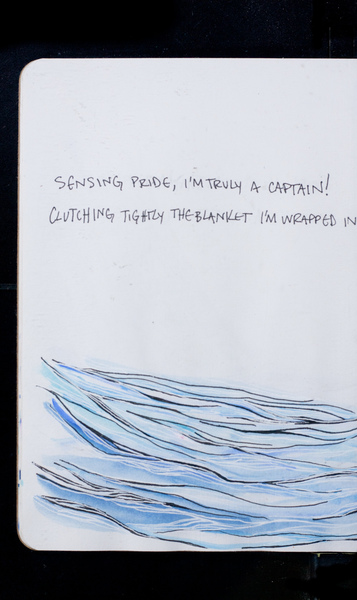 SENSING PRIDE, I'M TRULY A CAPTAIN!
CLUTCHING TIGHTLY THE BLANKET I'M WRAPPED IN